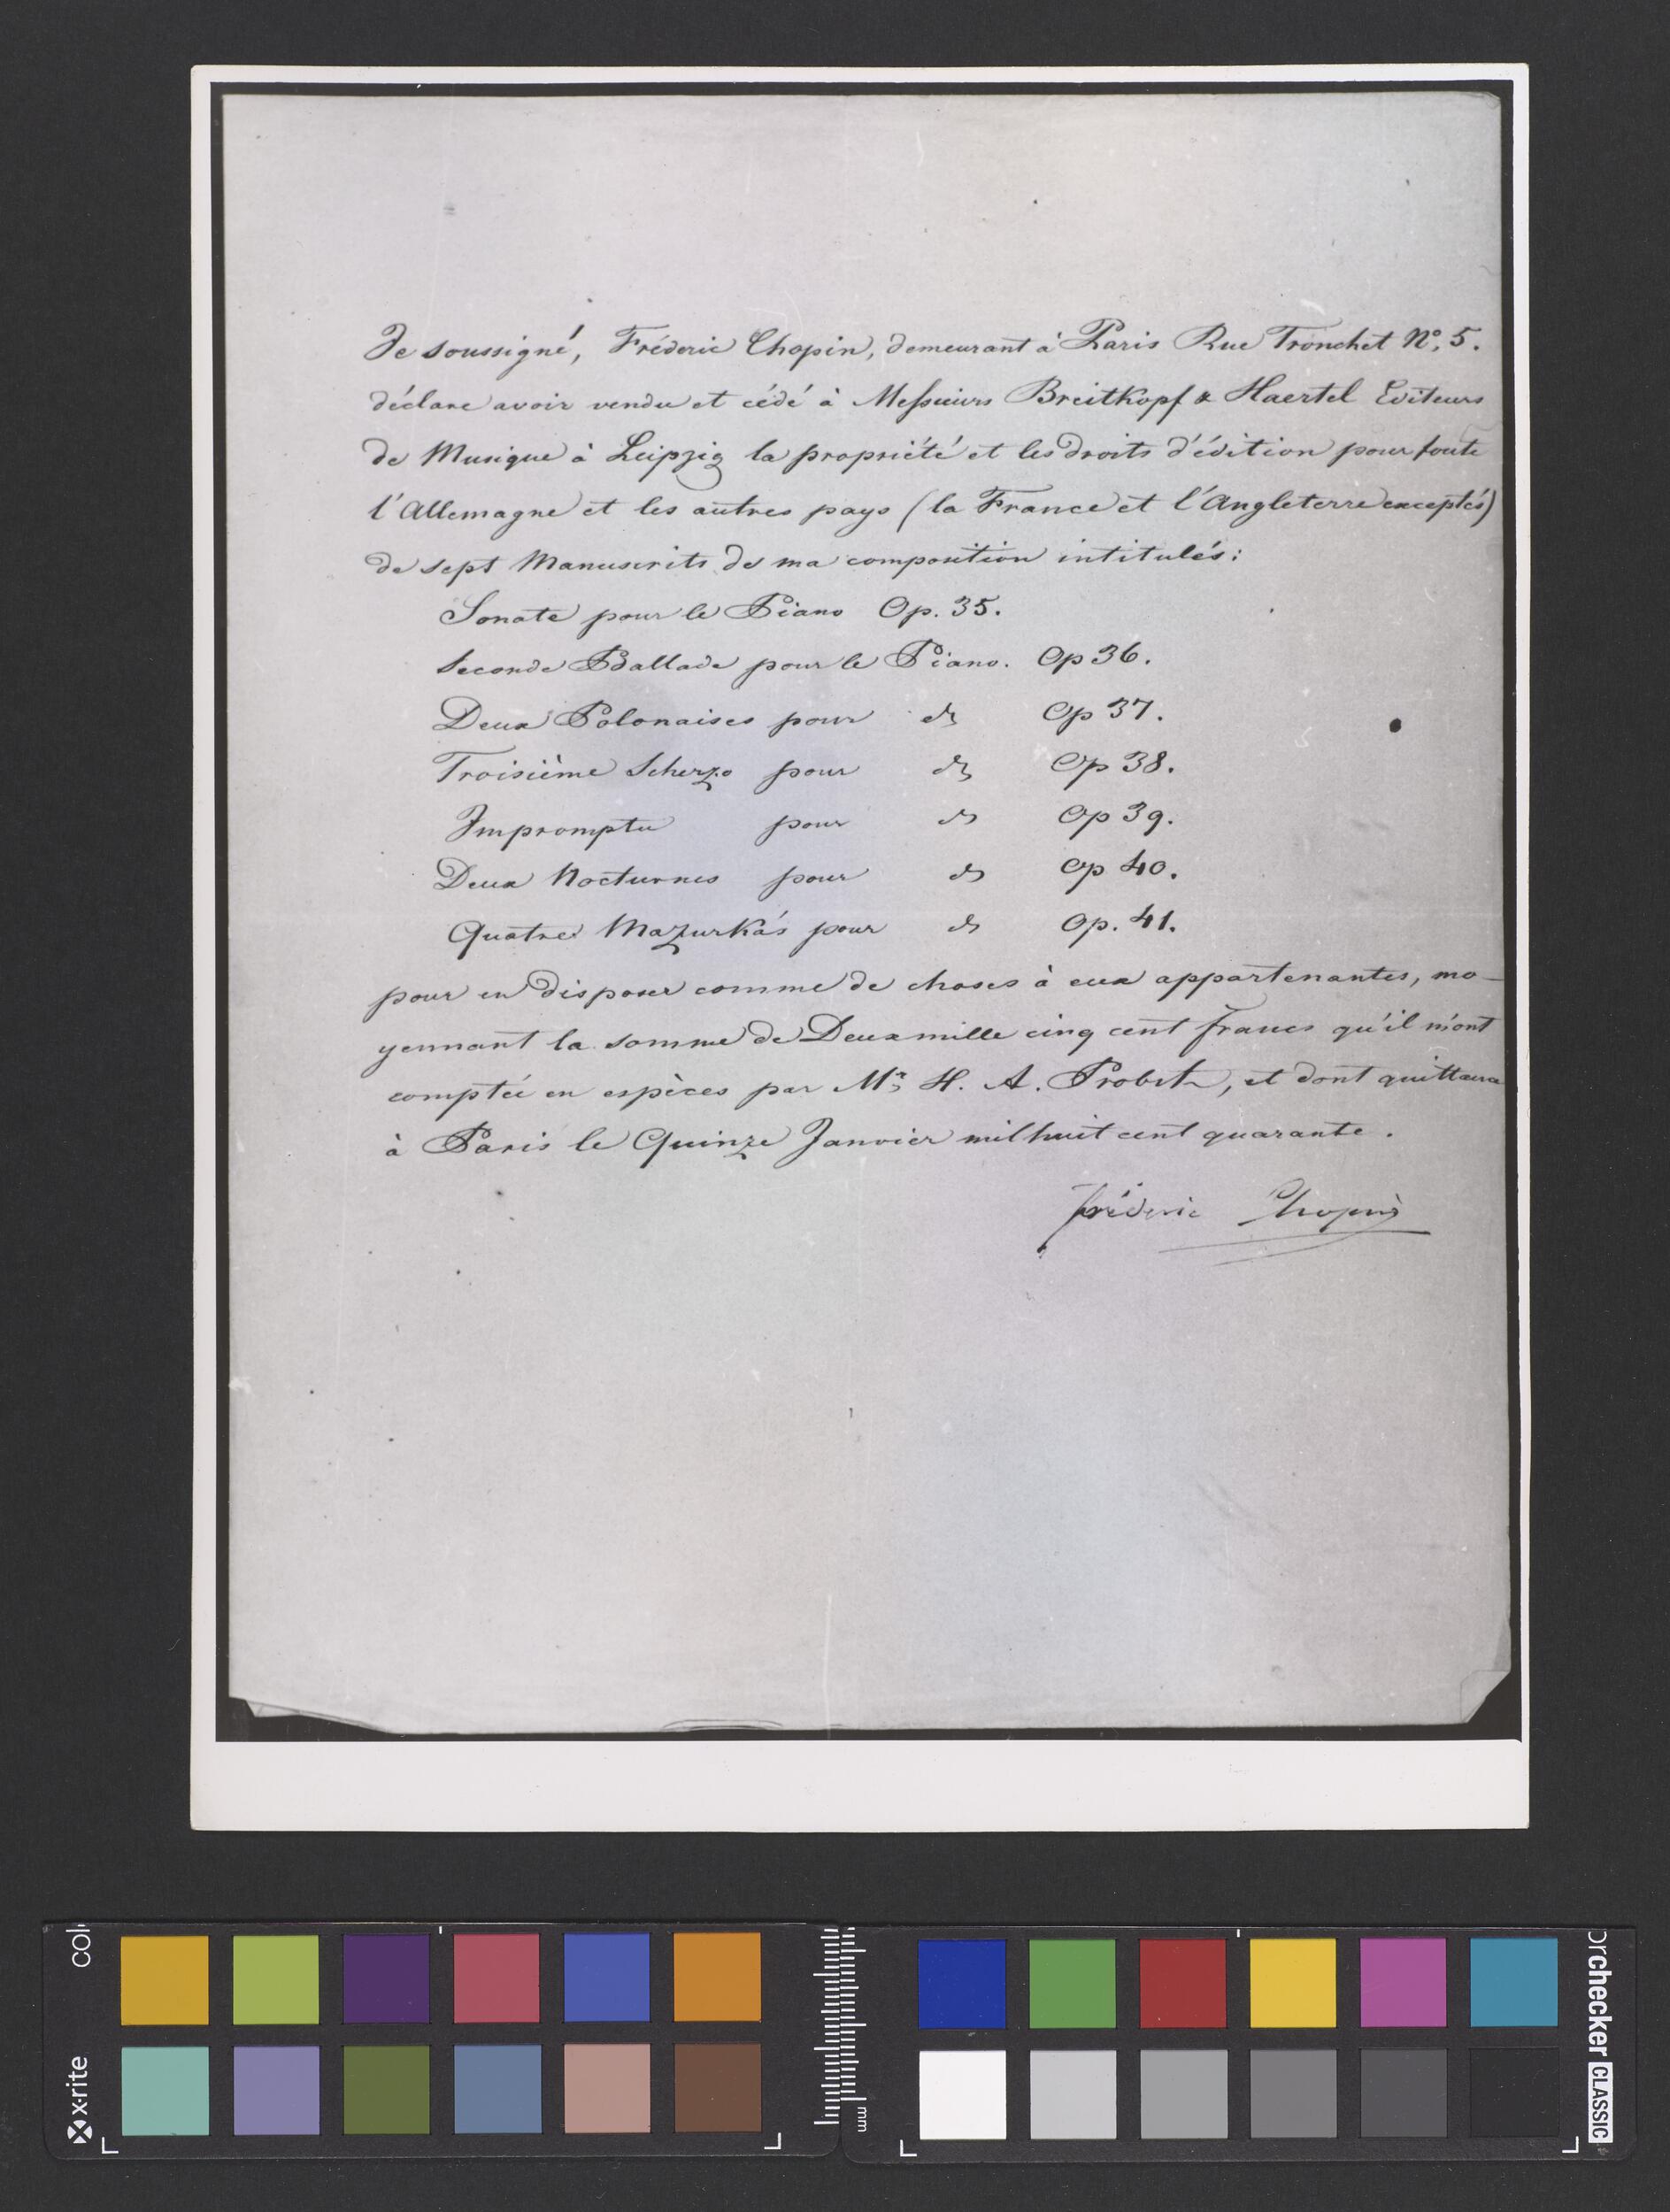 Je soussigné, Fréderic Chopin, demeurant à Paris Rue Tronchet No. 5.
déclare avoir vendu et cédé à Messieurs Breitkopf & Haertel Editeurs
de Musique à Leipzig la propriété et les droits d'édition pour toute
l'Allemagne et les autres pays (la France et l'Angleterre exceptés)
de sept Manuscrits de ma composition intitulés:
Sonate pour le Piano Op. 35.
Seconde Ballade pour le Piano. Op 36.
Deux Polonaises pour do Op 37.
Troisième Scherzo pour do Op 38.
Impromptu pour do Op 39.
Deux Nocturnes pour do Op 40.
Quatre Mazurká's pour do Op. 41.
pour en disposer comme de choses à eux appartenantes, mo-
yennant la somme de Deux mille cinq cent francs qu'il m'ont
comptée en espèces par Mr H. A. Probst, et dont quittance
à Paris le Quinze Janvier mil huit cent quarante.
Fréderic Chopin
x-rite
colorchecker CLASSIC
mm